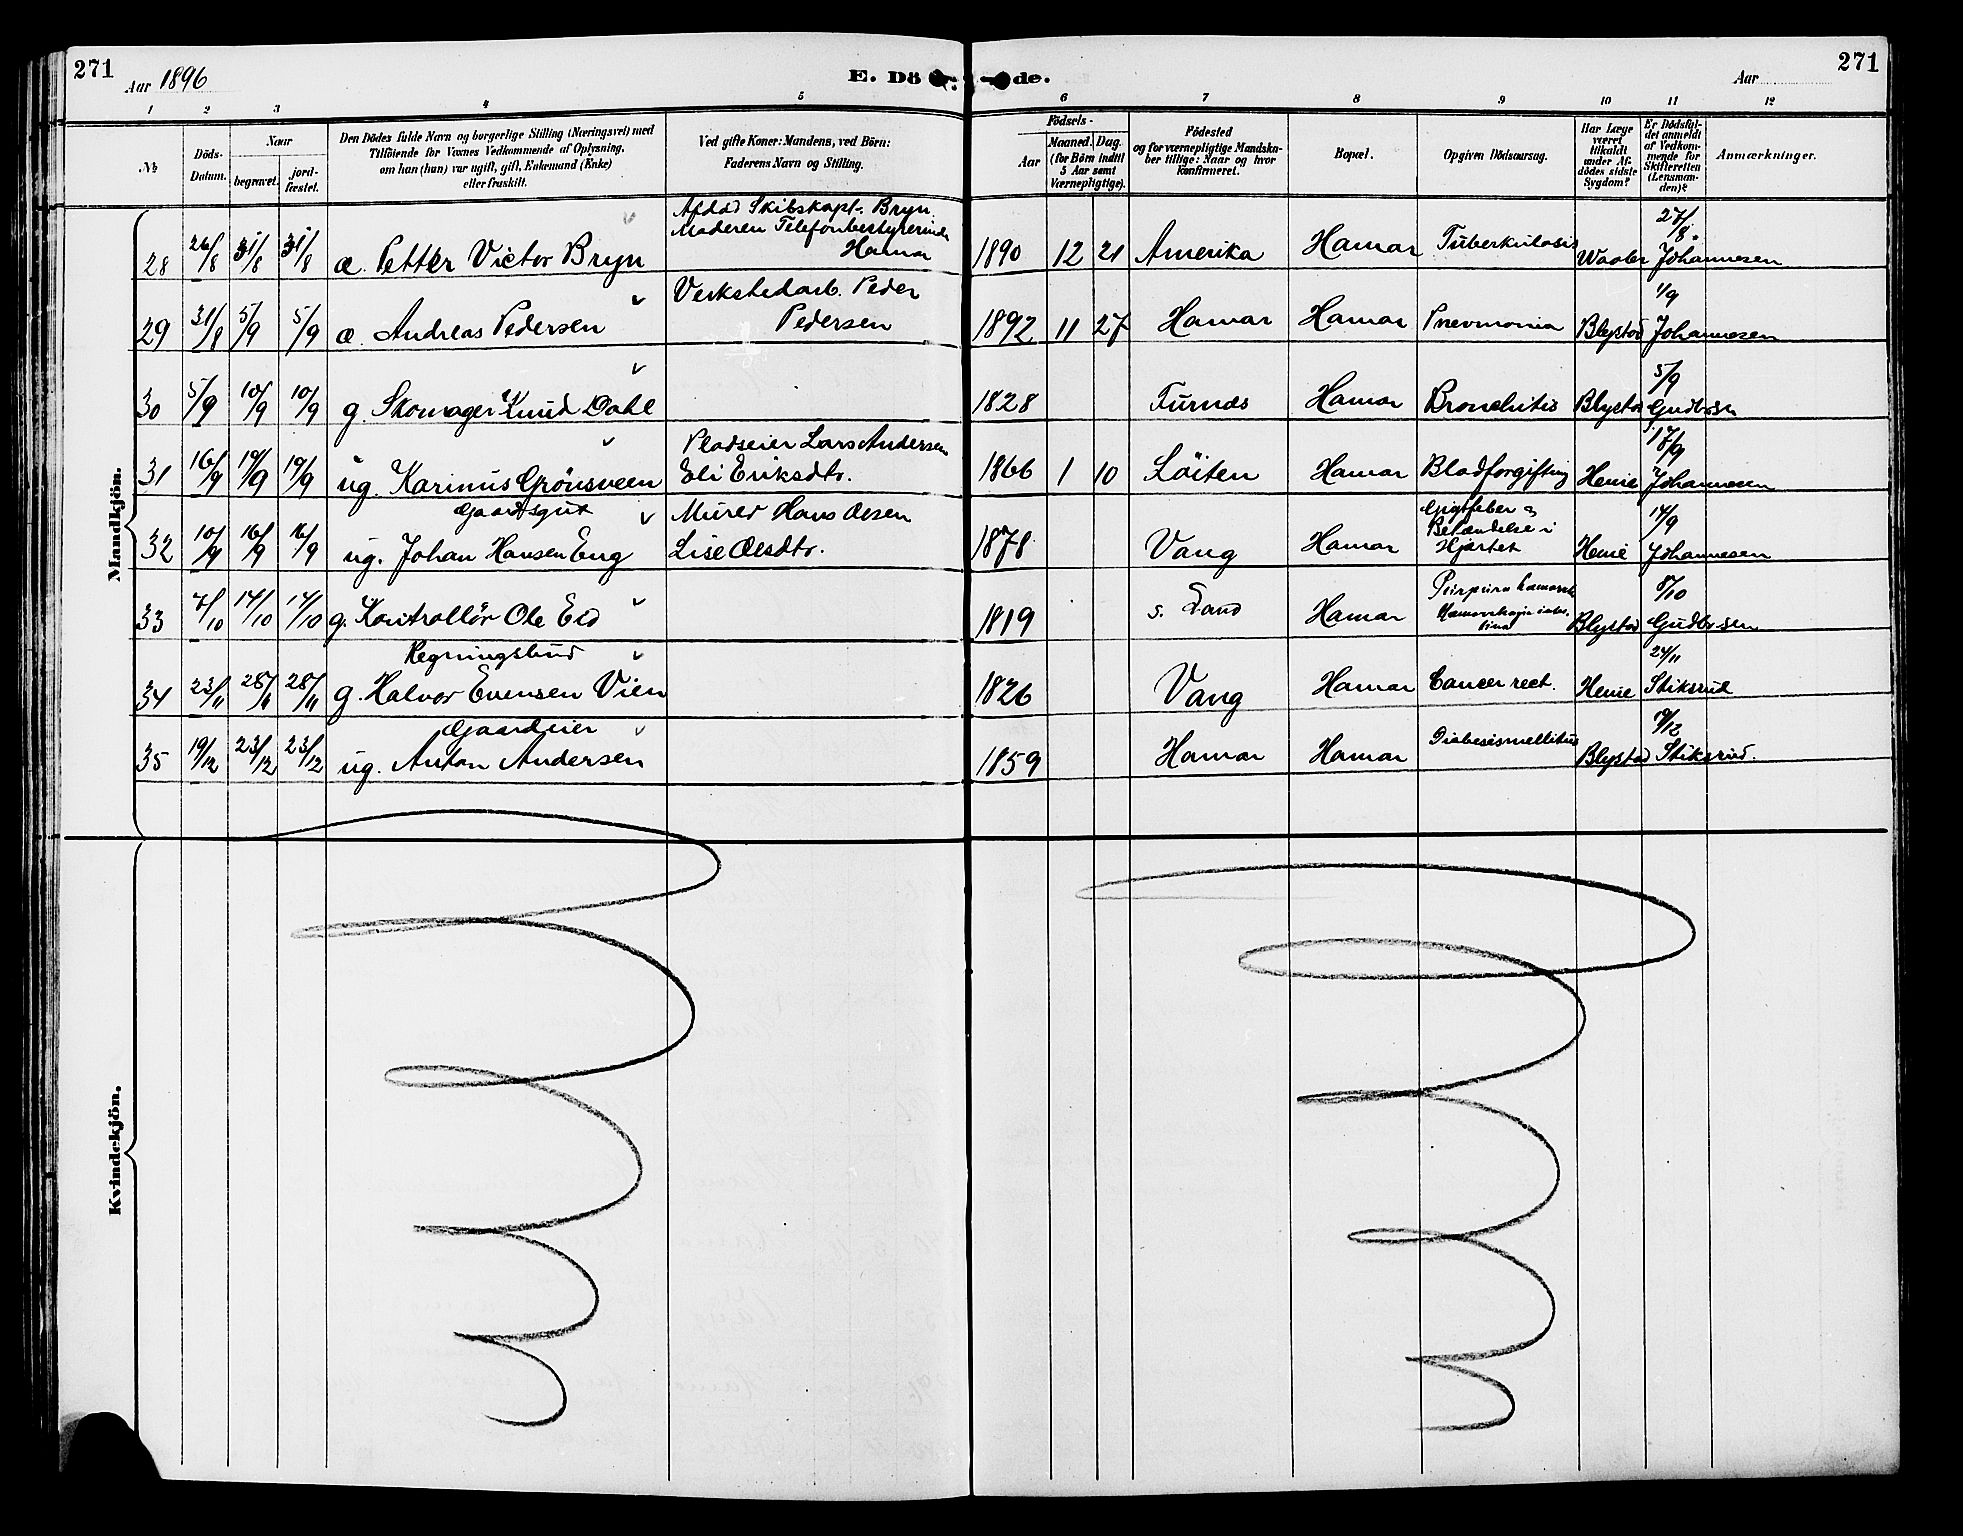 271
Aar 1896
E. Dö
de.
Aar
271
1 2 3 4 5 6 7 8 9 10 11 12
No
Döds-Datum.
Naar
begravet.
jord-fæstet.
Den Dödes fulde Navn og borgerlige Stilling (Næringsvei) med
Tilföiende for Voxnes Vedkommende af Oplysning,
om han (hun) var ugift, gift, Enkemand (Enke)
eller fraskilt.
Ved gifte Koner: Mandens, ved Börn:
Faderens Navn og Stilling.
Födsels-
Aar
Maaned. Dag.
(for Börn indtil
5 Aar samt
Værnepligtige).
Födested
og for værnepligtige Mandskaber tillige: Naar og hvor
konfirmeret.
Bopæl.
Opgiven Dödsaarsag.
Har Læge
været
tilkaldt
under Afdödes sidste
Sygdom?
Er Dödsfaldet anmeldt
af Vedkommende for
Skifteretten
(Lensmanden)?
Anmærkninger.
Mandkjön.
28 26/8 31/8 31/8 æ. Petter Victor Bryn Afdöd Skibskapt. Bryn Moderen Telefonbestyrerinde Hamar 1890 12 21 Amerika Hamar Tuberkulosis Waaler 27/8. Johannesen
29 31/8 5/9 5/9 æ. Andreas Pedersen Verkstedarb. Peder Pedersen 1892 11 27 Hamar Hamar Pnevmonia Blystad 1/9 Johannesen
30 5/9 10/9 10/9 g. Skomager Knud Dahl 1828 Furnes Hamar Bronchitis Blystad 5/9
31 16/9 19/9 19/9 ug. Karinus Grönsveen Pladseier Lars Andersen Eli Eriksdtr. 1866 1 10 Löiten Hamar Blodforgiftnig Heuie 17/9 Johannesen
32 10/9 16/9 16/9 Gaardsgut ug. Johan Hansen Eng Murer Hans Olesen Lise Olesdtr. 1878 Vang Hamar Gigtfeber og Betændelse i Hjertet Heuie 14/9 Johannesen
33 7/10 14/10 14/10 g. Kontrollör Ole Eid 1819 s. Land Hamar Blystad 8/10
34 23/11 28/11 28/11 Regningsbud g. Halvor Evensen Vien 1826 Vang Hamar Cancer rect. Heuie 24/11 Stiksrud
35 19/12 23/12 23/12 Gaardeier ug. Anton Andersen 1859 Hamar Hamar Diabesismellitus Blystad 19/12 Stiksrud.
Kvindekjön.